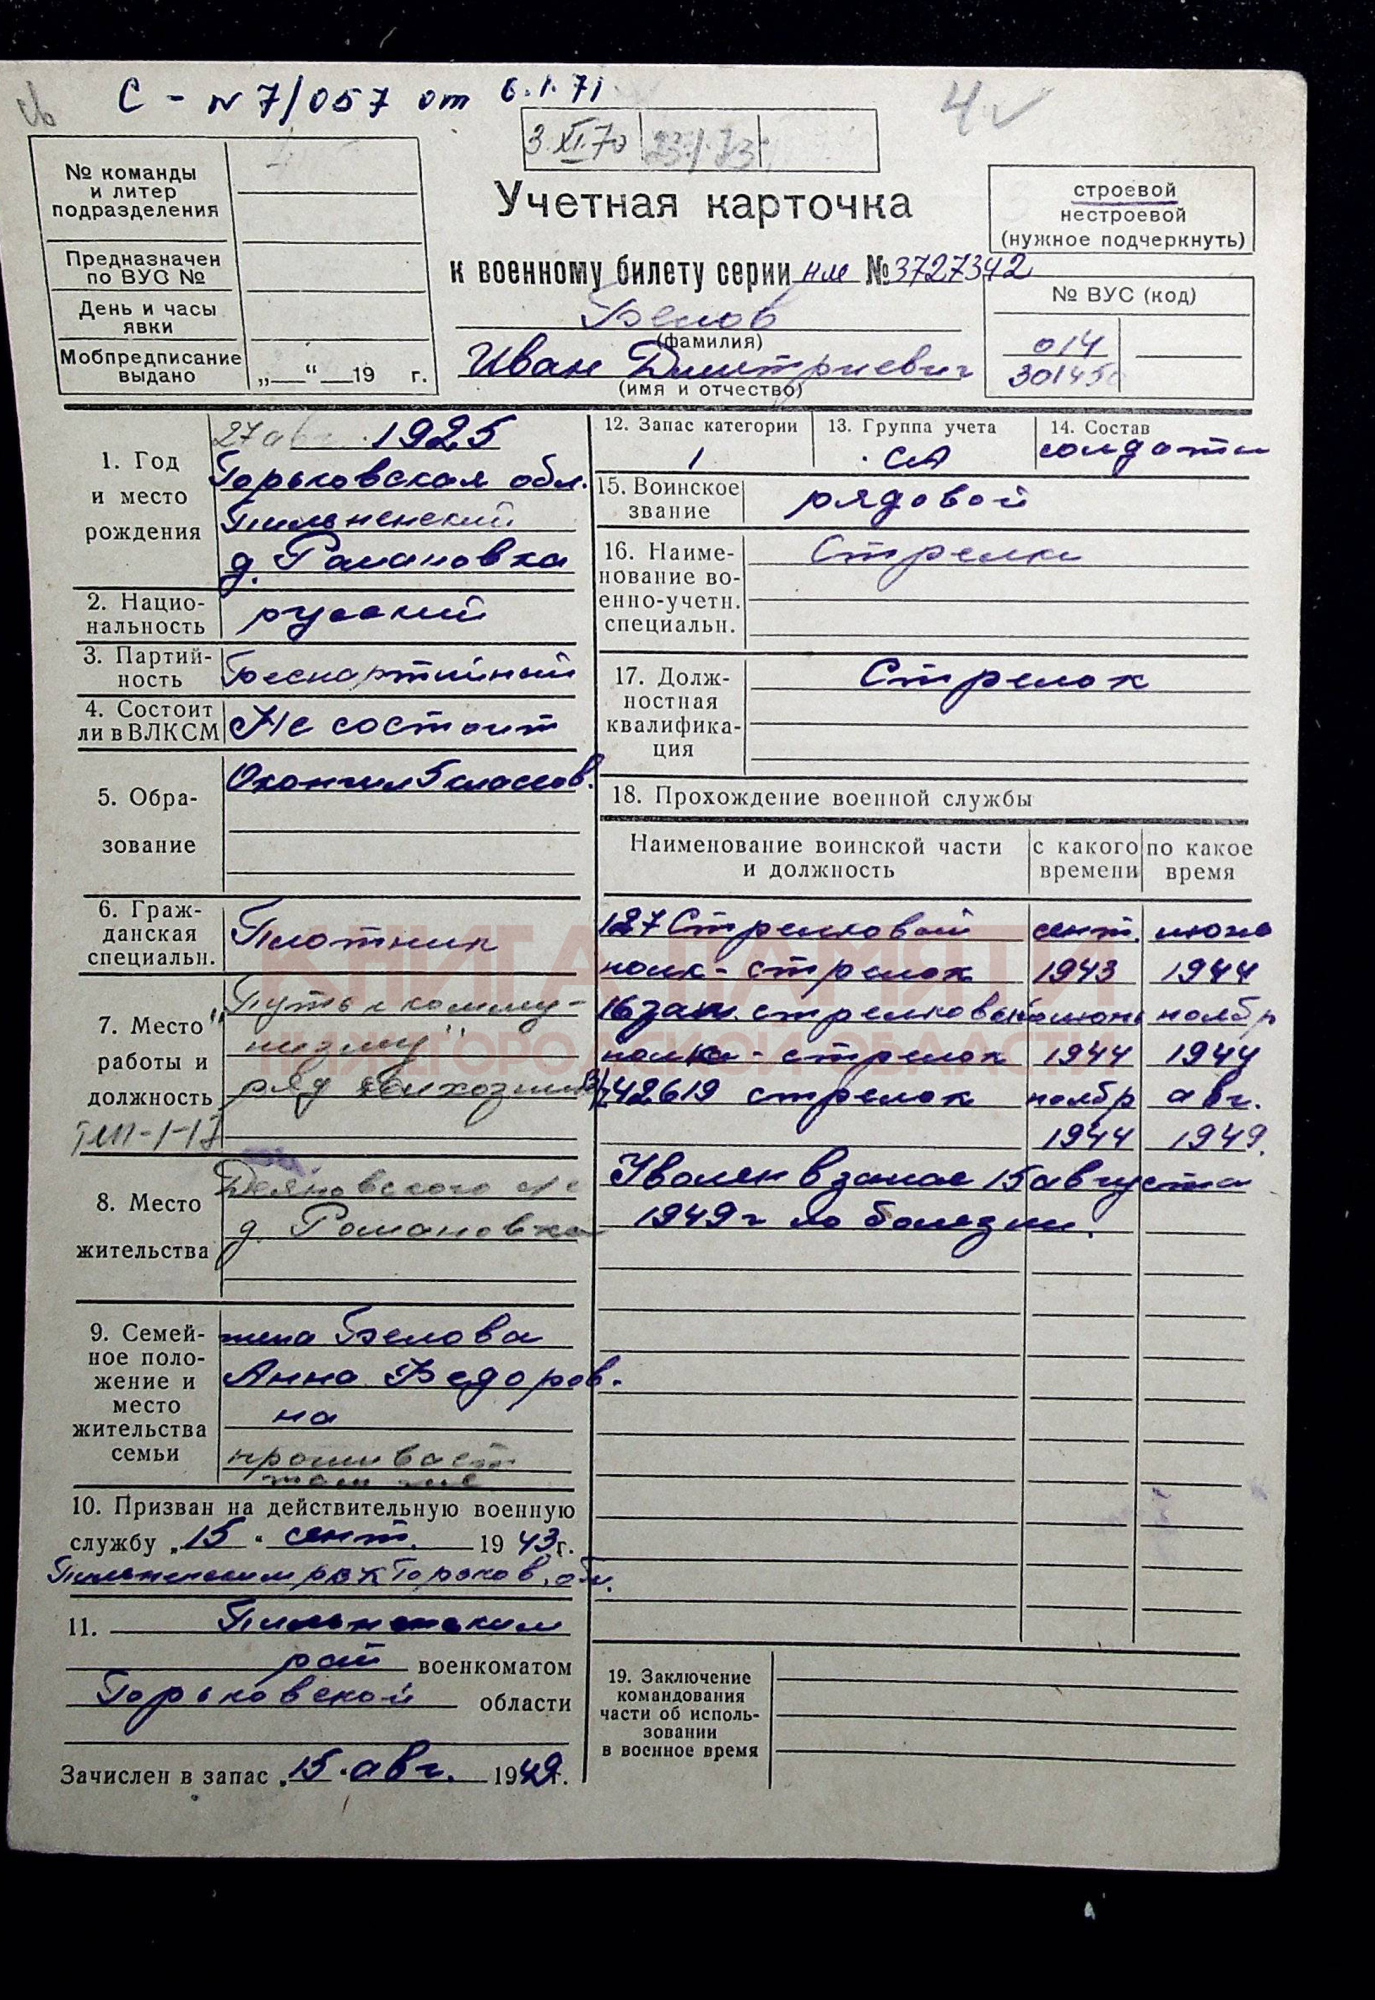 С - N 7/057 от 6.1.71
4
3.XI.70 23.1.73
№ команды
и литер
подразделения
Предназначен
по ВУС №
День и часы
явки
Мобпредписание
выдано „ “ 19 г.
Учетная карточка
к военному билету серии нм № 3727342
Белов
(фамилия)
Иван Дмитриевич
(имя и отчество)
строевой
нестроевой
(нужное подчеркнуть)
№ ВУС (код)
014
301450
1. Год
и место
рождения
27 авг. 1925
Горьковская обл.
Пильненский
д. Романовка
2. Нацио-
нальность
русский
3. Партий-
ность
Беспартийный
4. Состоит
ли в ВЛКСМ
Не состоит
5. Обра-
зование
Окончил 5 классов.
6. Граж-
данская
специальн.
Плотник
7. Место
работы и
должность
"Путь к комму-
низму"
ряд колхозник
8. Место
жительства
Деяновского с/с
д. Романовка
9. Семей-
ное поло-
жение и
место
жительства
семьи
жена Белова
Анна Федоров-
на
проживает
там же
10. Призван на действительную военную
службу „15“ сент. 1943 г.
Пильненским РВК Горьков. обл.
11. Пильненским
рай военкоматом
Горьковской области
Зачислен в запас „15“ авг. 1949 г.
12. Запас категории
1
13. Группа учета
СА
14. Состав
солдаты
15. Воинское
звание
рядовой
16. Наиме-
нование во-
енно-учетн.
специальн.
Стрелки
17. Долж-
ностная
квалифика-
ция
Стрелок
18. Прохождение военной службы
Наименование воинской части
и должность
с какого
времени
по какое
время
187 Стрелковый сент. июнь
полк - стрелок 1943 1944
16 зап. стрелковый июнь ноябр
полк - стрелок 1944 1944
в/ч 42619 стрелок ноябр авг.
1944 1949.
Уволен в запас 15 августа
1949 г по болезни.
19. Заключение
командования
части об исполь-
зовании
в военное время
КНИГА ПАМЯТИ
НИЖЕГОРОДСКОЙ ОБЛАСТИ